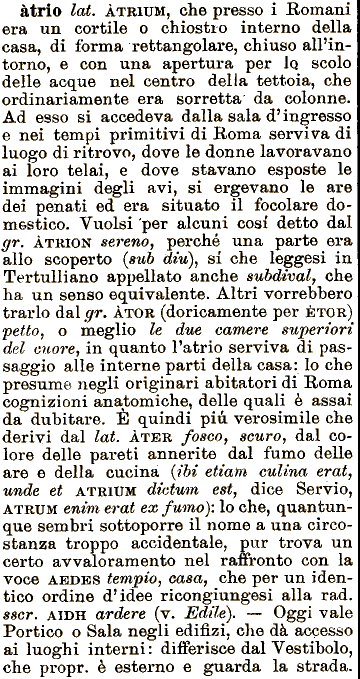 àtrio lat. ÀTRIUM, che presso i Romani
era un cortile o chiostro interno della
casa, di forma rettangolare, chiuso all'in-
torno, e con una apertura per lo scolo
delle acque nel centro della tettoia, che
ordinariamente era sorretta da colonne.
Ad esso si accedeva dalla sala d'ingresso
e nei tempi primitivi di Roma serviva di
luogo di ritrovo, dove le donne lavoravano
ai loro telai, e dove stavano esposte le
immagini degli avi, si ergevano le are
dei penati ed era situato il focolare do-
mestico. Vuolsi per alcuni cosí detto dal
gr. ÀTRION sereno, perché una parte era
allo scoperto (sub diu), sí che leggesi in
Tertulliano appellato anche subdival, che
ha un senso equivalente. Altri vorrebbero
trarlo dal gr. ÀTOR (doricamente per ÈTOR)
petto, o meglio le due camere superiori
del cuore, in quanto l'atrio serviva di pas-
saggio alle interne parti della casa: lo che
presume negli originari abitatori di Roma
cognizioni anatomiche, delle quali è assai
da dubitare. È quindi piú verosimile che
derivi dal lat. ÀTER fosco, scuro, dal co-
lore delle pareti annerite dal fumo delle
are e della cucina (ibi etiam culina erat,
unde et ATRIUM dictum est, dice Servio,
ATRUM enim erat ex fumo): lo che, quantun-
que sembri sottoporre il nome a una circo-
stanza troppo accidentale, pur trova un
certo avvaloramento nel raffronto con la
voce AEDES tempio, casa, che per un iden-
tico ordine d'idee ricongiungesi alla rad.
sscr. AIDH ardere (v. Edile). — Oggi vale
Portico o Sala negli edifizi, che dà accesso
ai luoghi interni: differisce dal Vestibolo,
che propr. è esterno e guarda la strada.